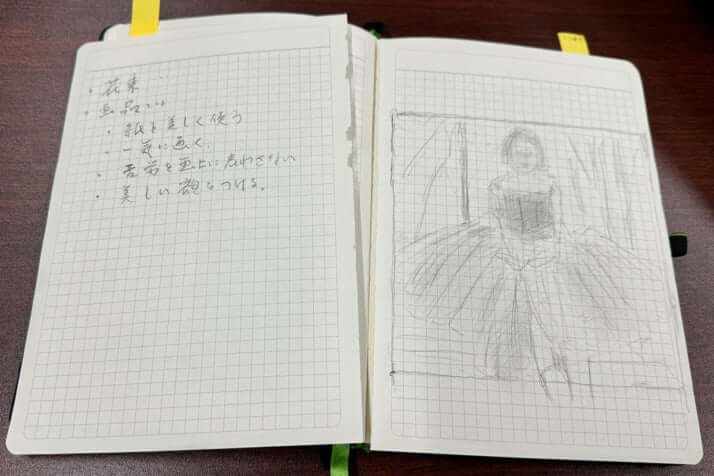 ・花束
・画扱い
・紙を美しく使う
・一気に画く。
・苦労を画上に表わさない
・美しい額をつける。